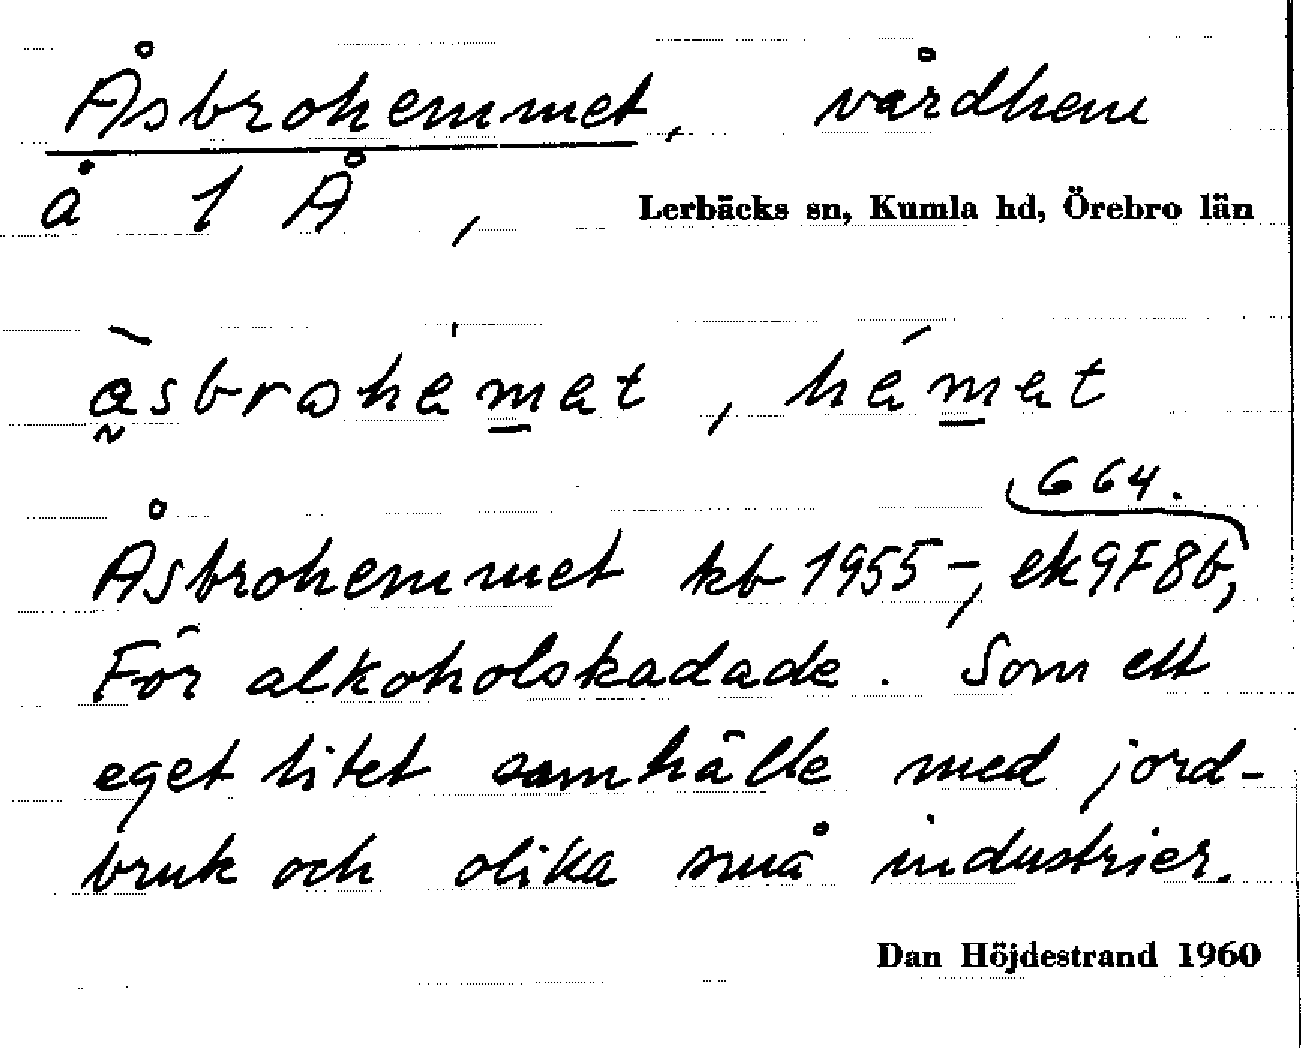 Åsbrohemmet, vårdhem
å 1 Å,
Lerbäcks sn, Kumla hd, Örebro län
àsbrohemet, hémet
664.
Åsbrohemmet kb 1955-, ek 9F8b,
För alkoholskadade. Som ett
eget litet samhälle med jord-
bruk och olika små industrier.
Dan Höjdestrand 1960